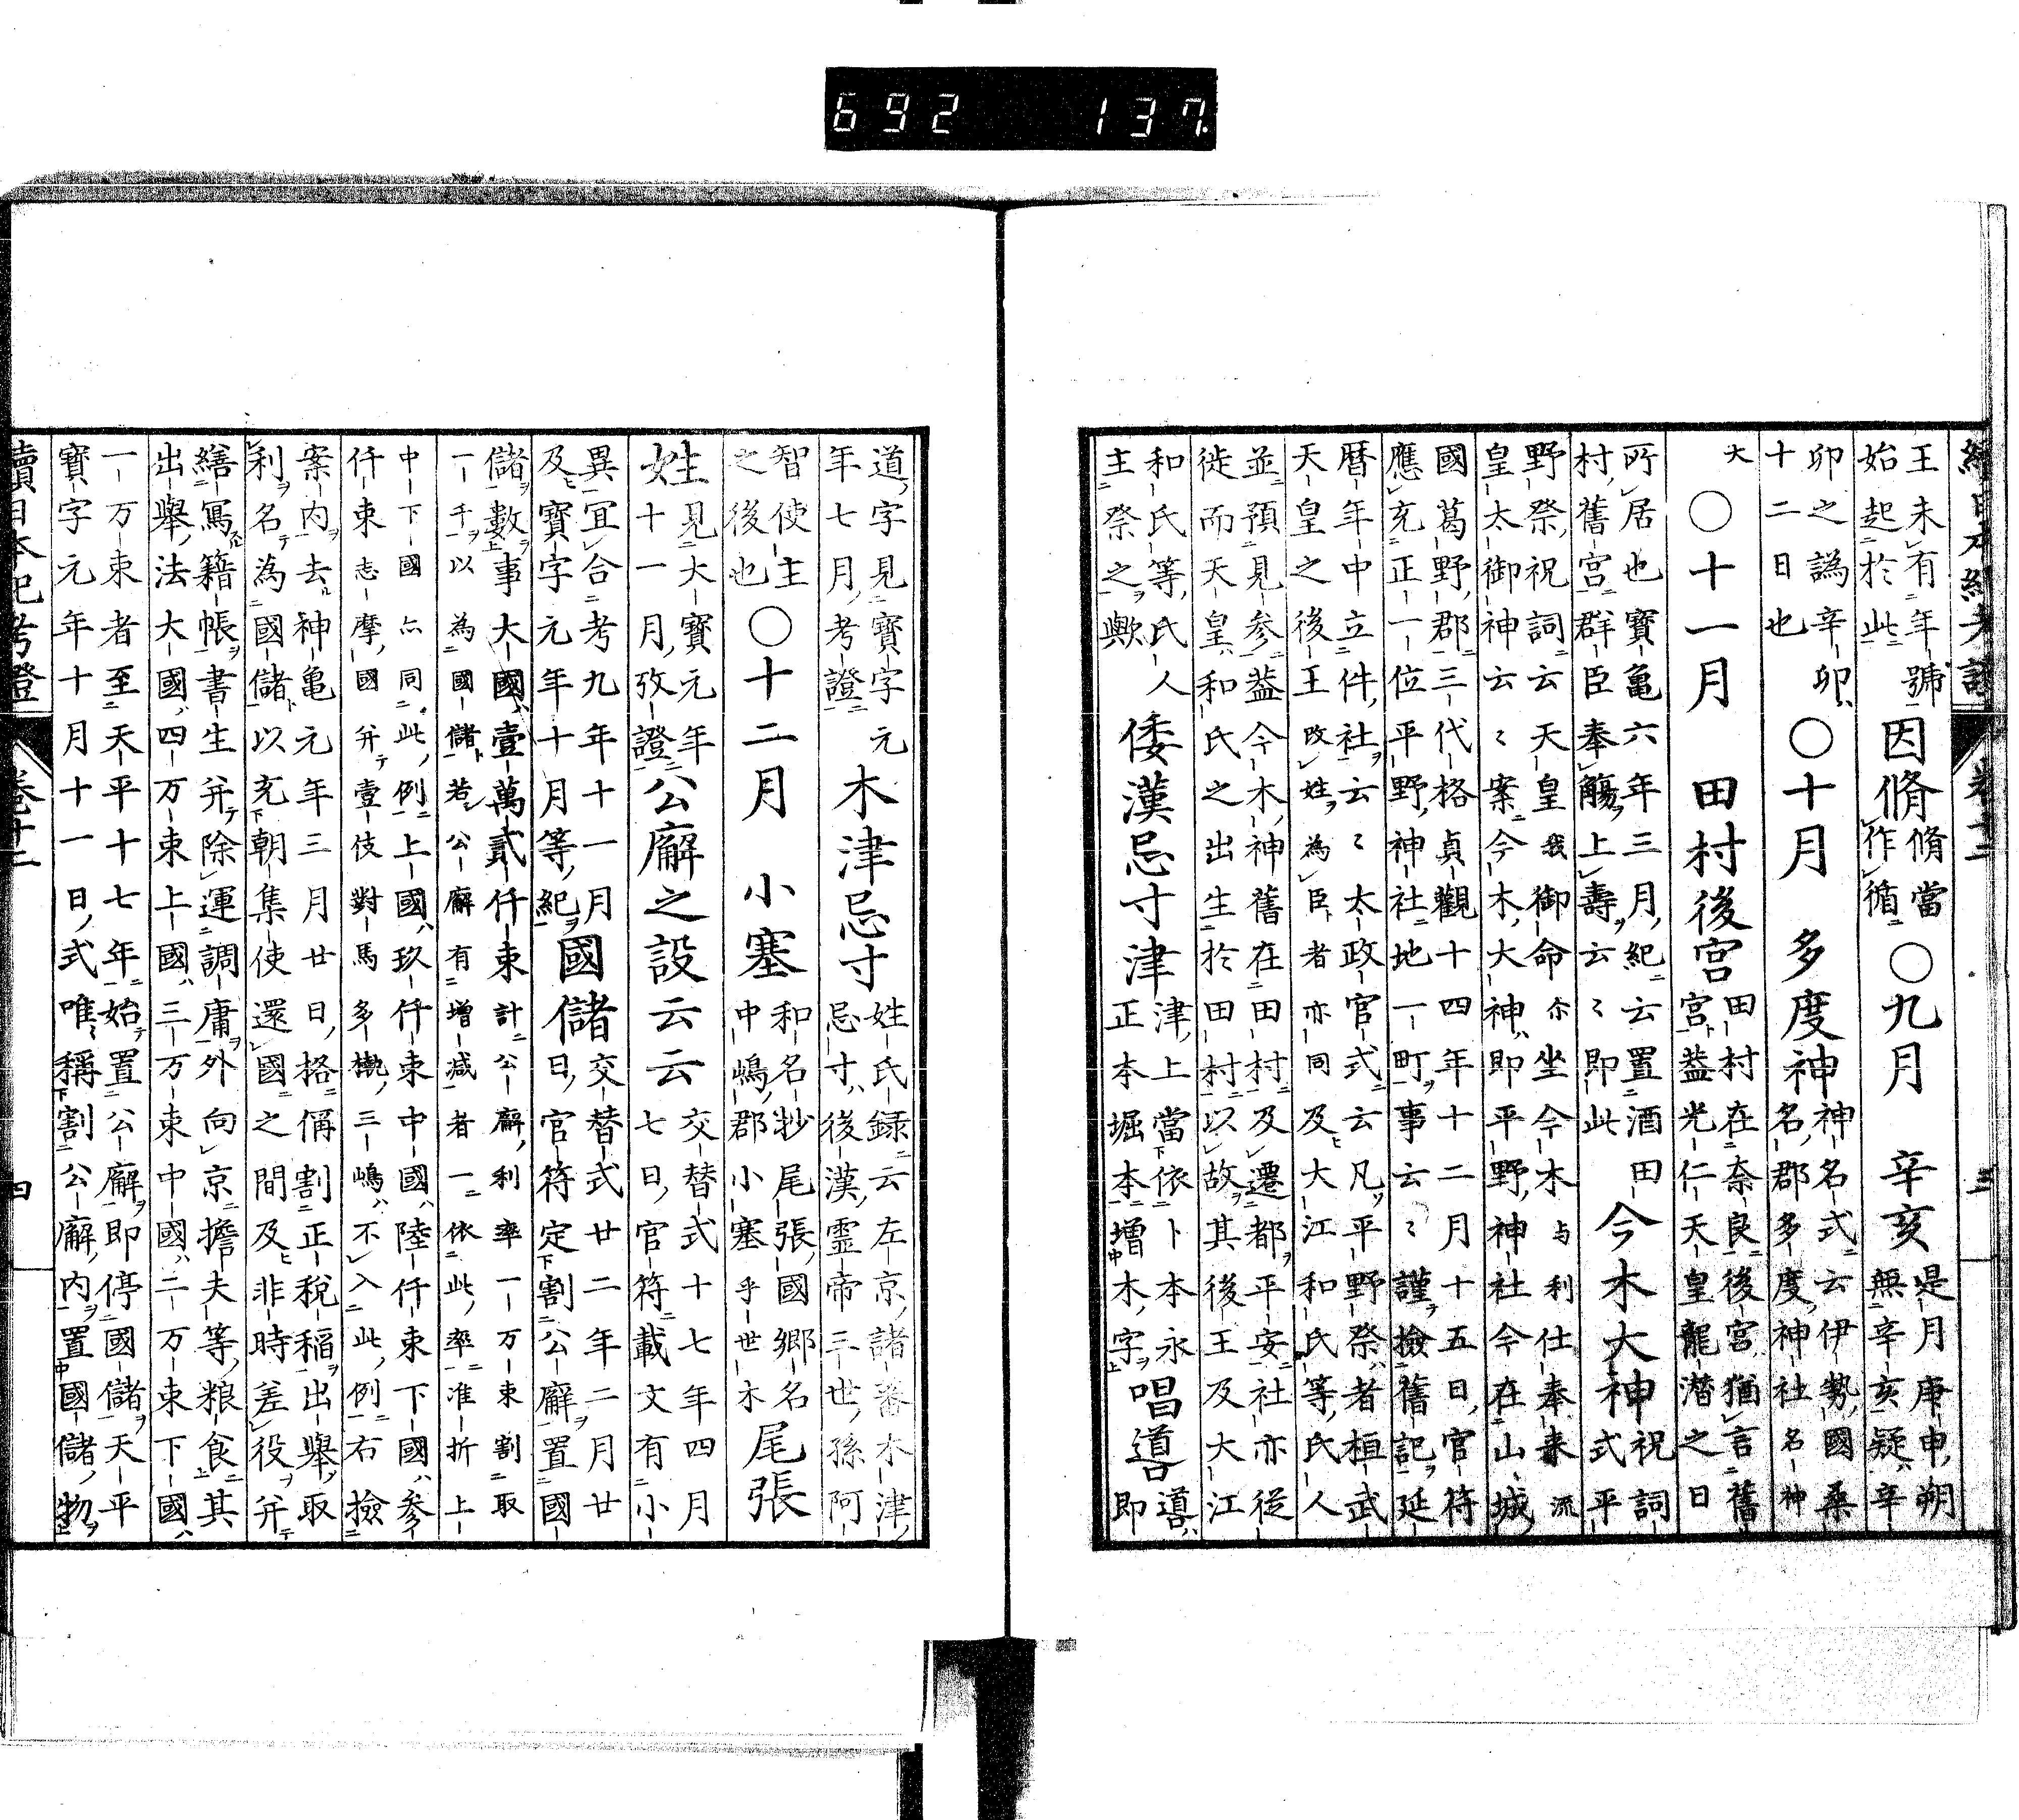 692 137.
續日本紀考證 卷十二 三
王未有年號
始起於此
因脩
脩當
作循
○九月 辛亥
是月庚申朔
無辛亥疑辛
卯之譌辛卯
十二日也
○十月 多度神
神名式云伊勢國桑
名郡多度神社名神
大
○十一月 田村後宮
田村在奈良後宮猶言舊
宮蓋光仁天皇龍潜之日
所居也寶亀六年三月紀云置酒田
村舊宮群臣奉觴上壽云〻即此
今木大神
祝詞
式平
野祭祝詞云天皇我御命尓坐今木与利仕奉来流
皇太御神云〻案今木大神即平野神社今在山城
國葛野郡三代格貞觀十四年十二月十五日官符
應充正一位平野神社地一町事云〻謹檢舊記延
暦年中立件社云〻太政官式云凡平野祭者桓武
天皇之後王改姓為臣者亦同及大江和氏等氏人
並預見参蓋今木神舊在田村及遷都平安社亦従
徙而天皇和氏之出生於田村以故其後王及大江
和氏等氏人
主祭之歟
倭漢忌寸津
津上當依卜本永
正本堀本増木字
唱導
導
即
道字見寶字元
年七月考證
木津忌寸
姓氏録云左京諸蕃木津
忌寸後漢霊帝三世孫阿
智使主
之後也
○十二月 小塞
和名抄尾張國郷名
中嶋郡小塞乎世木
尾張
姓
見大寶元年
十一月攷證
公廨之設云云
交替式十七年四月
七日官符載文有小
異宜合考九年十一月
及寶字元年十月等紀
國儲
交替式廿二年二月廿
日官符定割公廨置國
儲數事大國壹萬貳仟束計公廨利率一万束割取
一千以為國儲若公廨有増减者一依此率准折上
中下國亦同此例上國玖仟束中國陸仟束下國参
仟束志摩國并壹伎對馬多褹三嶋不入此例右檢
案内去神亀元年三月廿日格偁割正税稲出舉取
利名為國儲以充朝集使還國之間及非時差役并
繕寫籍帳書生并除運調庸外向京擔夫等粮食其
出舉法大國四万束上國三万束中國二万束下國
一万束者至天平十七年始置公廨即停國儲天平
寶字元年十月十一日式唯稱割公廨内置國儲物
續日本紀考證 卷十二 四